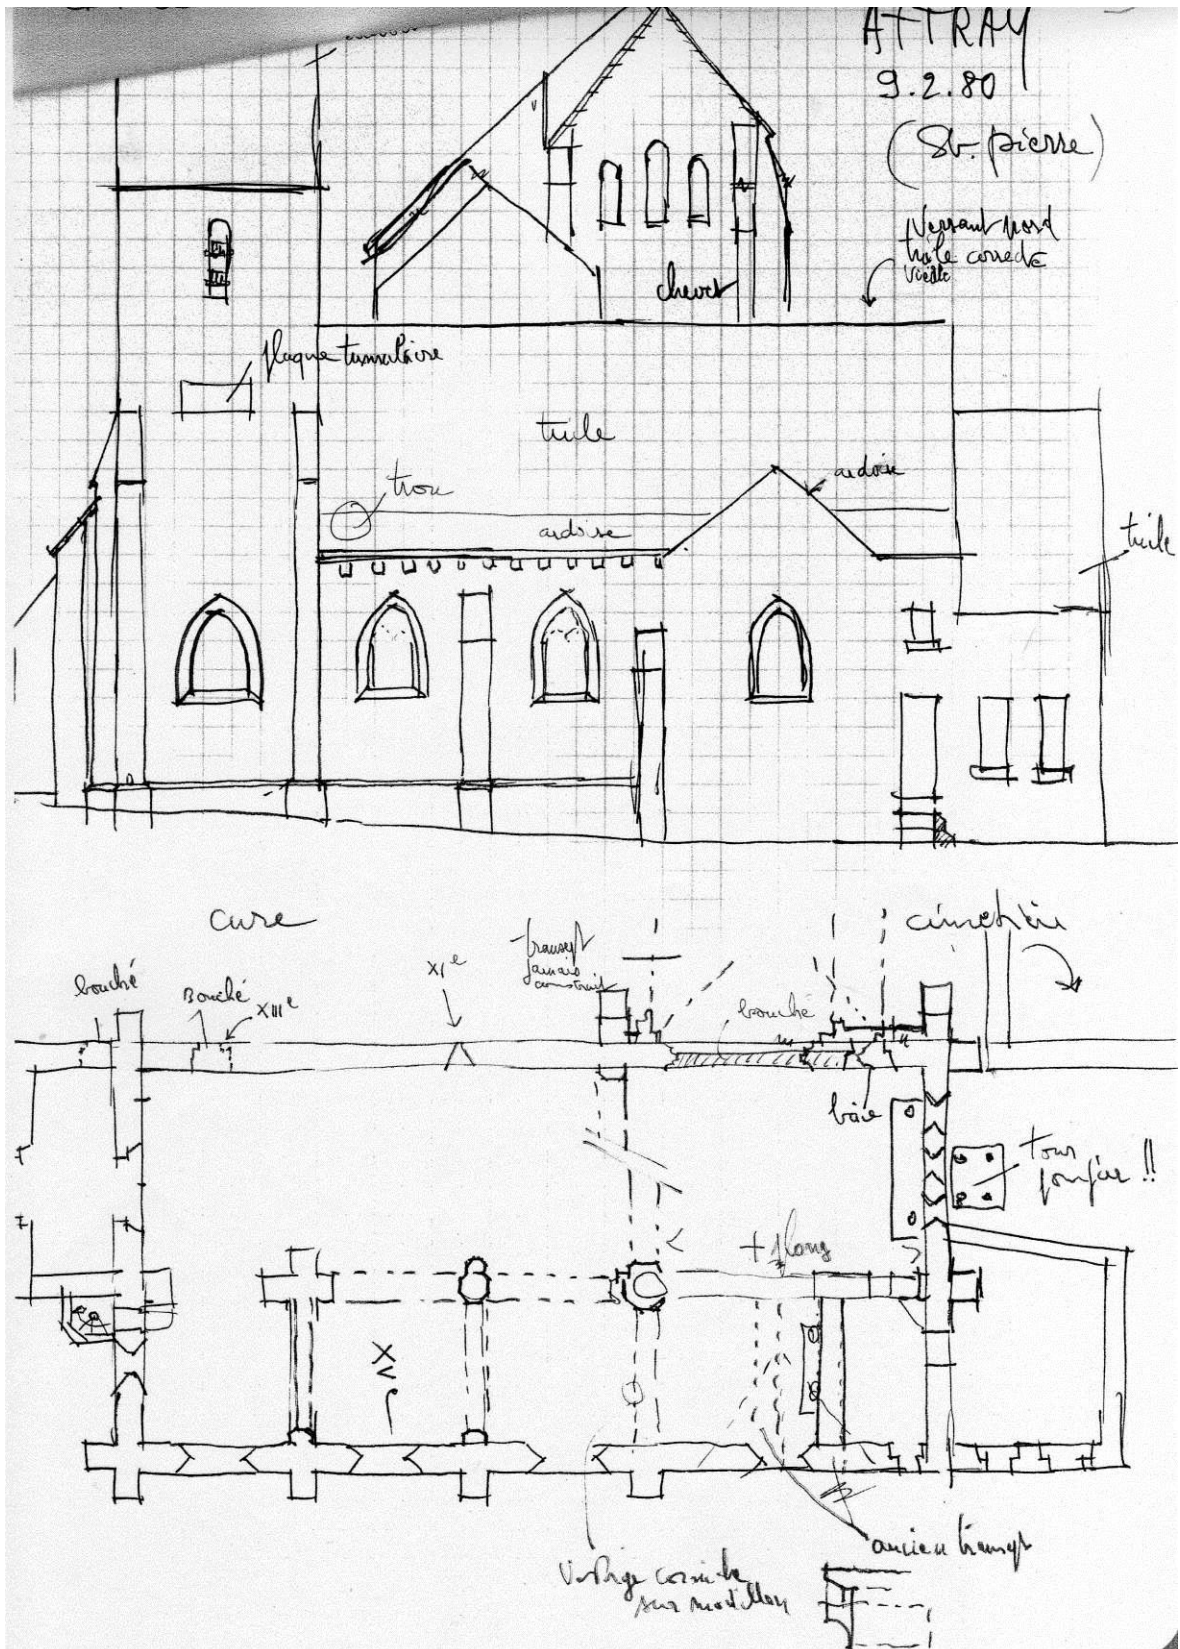 ATTRAY
9.2.80
(St. pierre)
Versant nord
tuile
vieille
chevet
plaque tumulaire
tuile
trou
ardoise
ardoise
tuile
cure
cimetière
bouché
Bouché
XIIIe
XIe
transept
jamais
construit
bouché
baie
!!
+
XVe
ancien transept
Vestige corniche
sur modillon